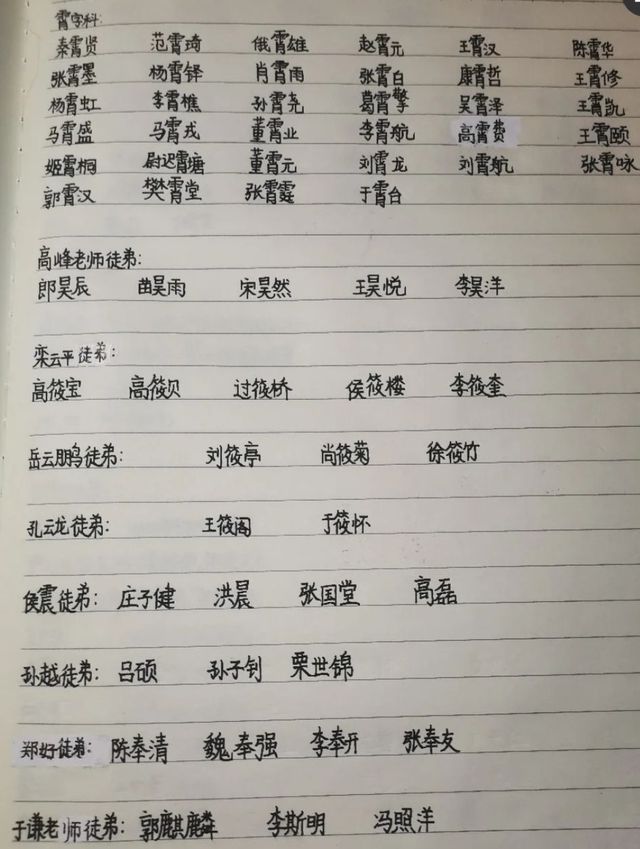 霄字科:
秦霄贤 范霄琦 俄霄雄 赵霄元 王霄汉 陈霄华
张霄墨 杨霄铎 肖霄雨 张霄白 康霄哲 王霄修
杨霄虹 李霄樵 孙霄尧 葛霄擎 吴霄泽 王霄凯
马霄盛 马霄戎 董霄业 李霄航 高霄费 王霄颐
姬霄桐 尉迟霄塘 董霄元 刘霄龙 刘霄航 张霄咏
郭霄汉 樊霄堂 张霄霆 于霄台
高峰老师徒弟:
郎昊辰 苗昊雨 宋昊然 王昊悦 李昊洋
栾云平徒弟:
高筱宝 高筱贝 过筱桥 侯筱楼 李筱奎
岳云鹏徒弟: 刘筱亭 尚筱菊 徐筱竹
孔云龙徒弟: 王筱阁 于筱怀
侯震徒弟: 庄子健 洪晨 张国堂 高磊
孙越徒弟: 吕硕 孙子钊 栗世锦
郑好徒弟: 陈奉清 魏奉强 李奉开 张奉友
于谦老师徒弟: 郭麒麟 李斯明 冯照洋